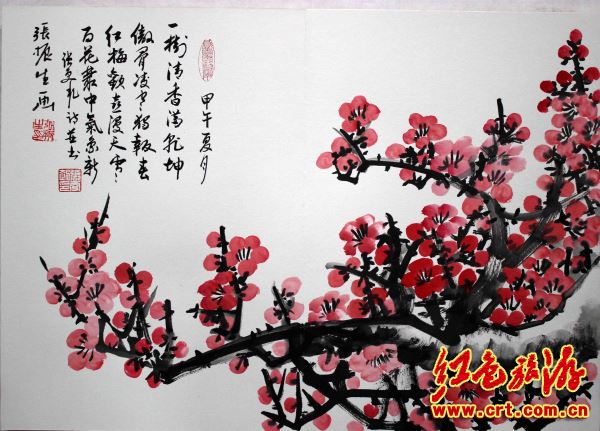 甲午夏月
一樹清香滿乾坤
傲骨凌寒獨報春
紅梅歡喜漫天雪
百花叢中氣象新
張振生画
红色旅游
www.crt.com.cn